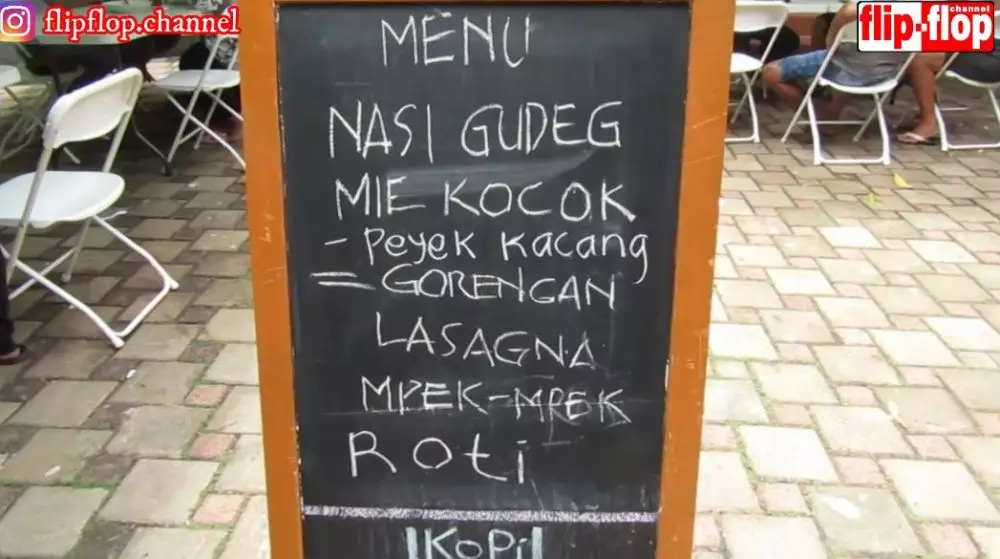 flipflop.channel
channel
flip-flop
MENU
NASI GUDEG
MIE KOCOK
- Peyek Kacang
= GORENGAN
LASAGNA
MPEK-MPEK
Roti
KOPI